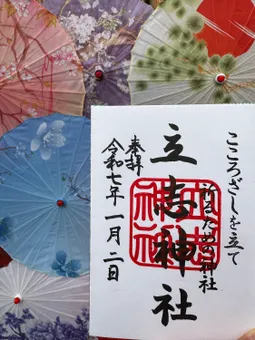 こころざしを立て
祈るための神社
立志神社
奉拝
令和七年一月二日